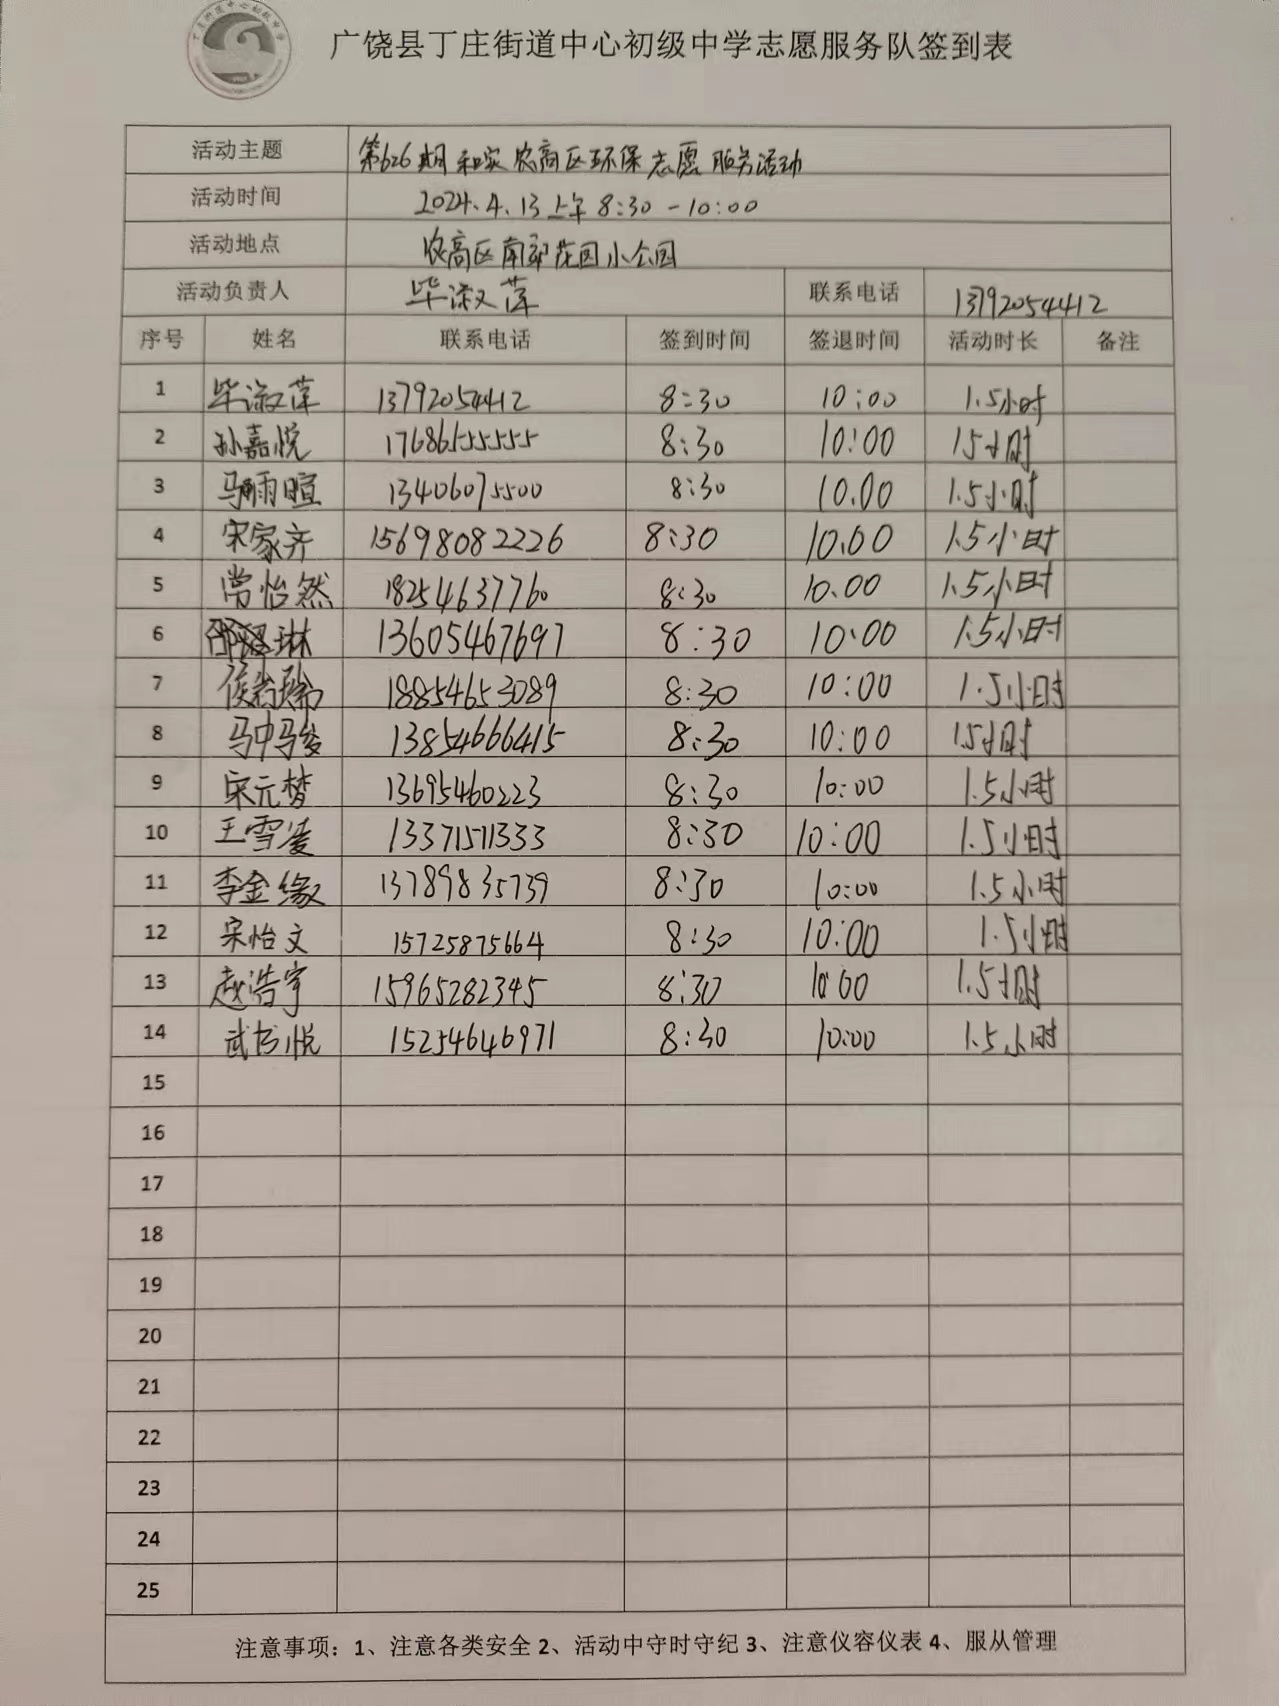 丁庄街道中心初级中学
广饶县丁庄街道中心初级中学志愿服务队签到表
活动主题 第626期和家农高区环保志愿服务活动
活动时间 2024.4.13上午8:30-10:00
活动地点 农高区南郊花园小公园
活动负责人 毕淑萍 联系电话 13792054412
序号 姓名 联系电话 签到时间 签退时间 活动时长 备注
1 毕淑萍 13792054412 8:30 10:00 1.5小时
2 孙嘉悦 17686155555 8:30 10:00 15小时
3 马雨暄 13406075500 8:30 10.00 1.5小时
4 宋家齐 15698082226 8:30 10.00 1.5小时
5 常怡然 18254637760 8:30 10.00 1.5小时
6 琳 13605467697 8:30 10:00 1.5小时
7 18854653089 8:30 10:00 1.5小时
8 马中骏 13854666415 8:30 10:00 15小时
9 宋元梦 13695460223 8:30 10:00 1.5小时
10 王雪凌 13371571333 8:30 10:00 1.5小时
11 李金缘 13789835739 8:30 10:00 1.5小时
12 宋怡文 15725875664 8:30 10:00 1.5小时
13 赵浩宇 15965282345 8:30 10:00 1.5小时
14 武悦 15254646971 8:30 10:00 1.5小时
15
16
17
18
19
20
21
22
23
24
25
注意事项：1、注意各类安全 2、活动中守时守纪 3、注意仪容仪表 4、服从管理